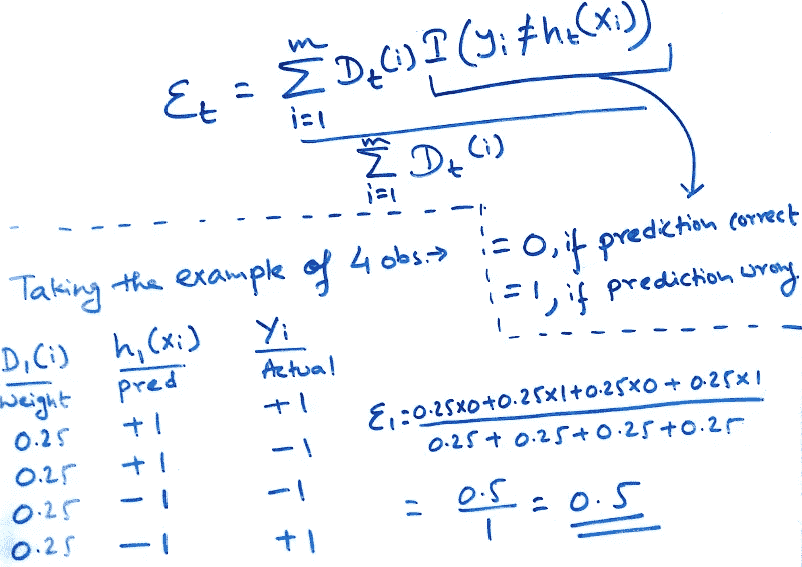 εt = m Σ i=1 Dt(i) I (yi ≠ ht(xi))
m Σ i=1 Dt(i)
= 0, if prediction correct
= 1, if prediction wrong.
Taking the example of 4 obs.→
D1(i) h1(xi) yi
weight pred Actual
0.25 +1 +1
0.25 +1 -1
0.25 -1 -1
0.25 -1 +1
ε1 = 0.25x0+0.25x1+0.25x0+0.25x1
0.25+0.25+0.25+0.25
= 0.5/1 = 0.5